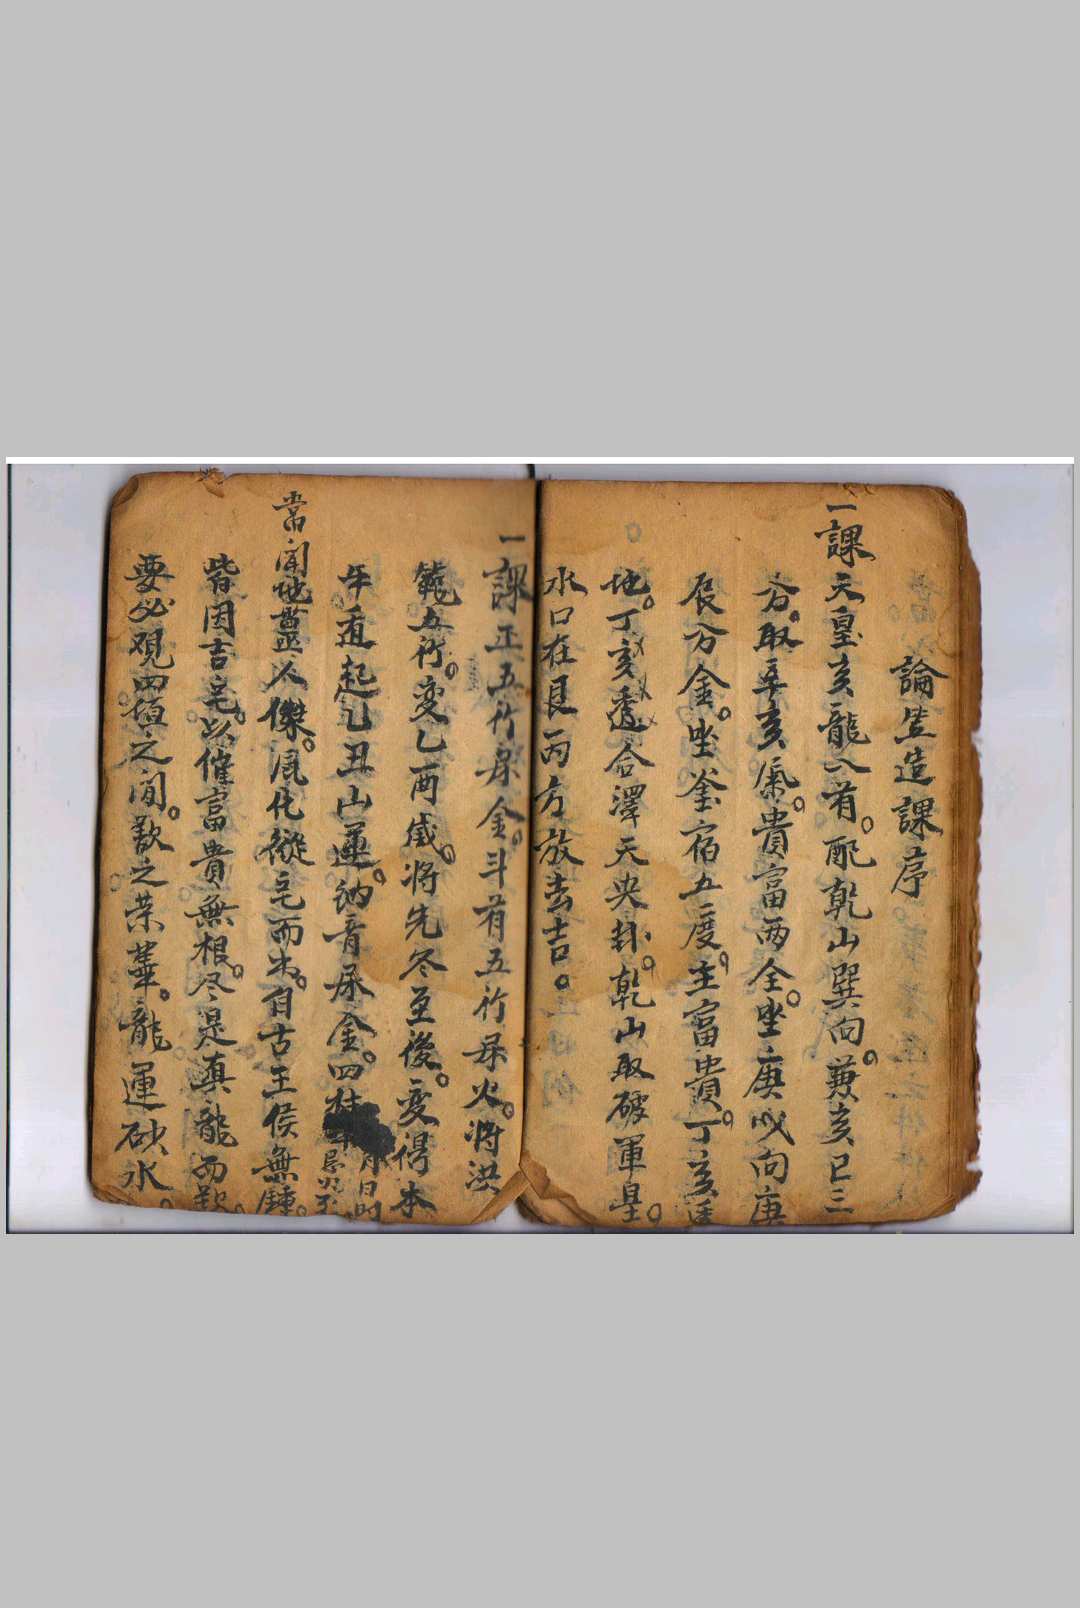 論竖造課序
一課天皇亥龍入首。配乾山巽向。兼亥巳三
分。取辛亥氣。貴富两全。坐庚戌向庚
辰分金。坐奎宿五度。主富貴。丁亥透
地。丁亥透合澤天夬卦。乾山取破軍星。
水口在艮丙方放去吉。
一課正五行屬金。斗首五行屬火。將洪
範五行。变乙酉歲。將先冬至後。变得本
年遁起乙丑山運。納音屬金。四柱
水日時
忌
常闻地靈人傑。宅而出。自古王侯無種。
皆因吉宅。以催富貴無根。尽是真龍而
要必觀四垣之间。歎之荣華。龍運砂水。